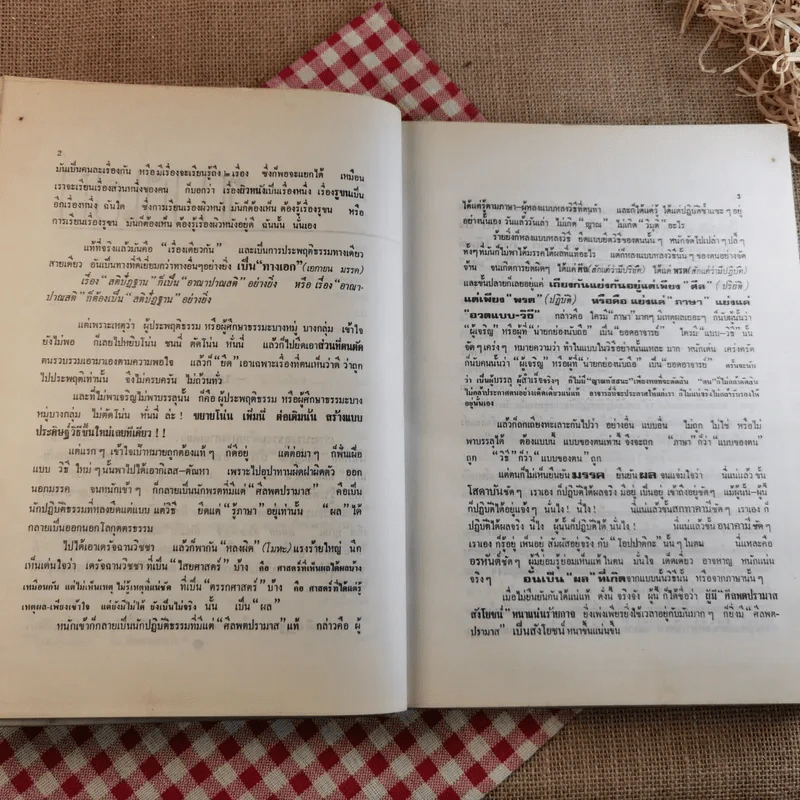 2
มันเป็นคนละเรื่องกัน หรือมีเรื่องจะเรียนรู้ถึง ๒ เรื่อง ซึ่งก็พอจะแยกได้ เหมือน
เราจะเรียนเรื่องส่วนหนึ่งของคน ก็บอกว่า เรื่องผิวหนังเป็นเรื่องหนึ่ง เรื่องรูขนเป็น
อีกเรื่องหนึ่ง ฉันใด ซึ่งการเรียนเรื่องผิวหนัง มันก็ต้องเห็น ต้องรู้เรื่องรูขน หรือ
การเรียนเรื่องรูขน มันก็ต้องเห็น ต้องรู้เรื่องผิวหนังอยู่ดี ฉันนั้น นั่นเอง
แท้ที่จริงแล้วมันคือ “เรื่องเดียวกัน” และเป็นการประพฤติธรรมทางเดียว
สายเดียว อันเป็นทางที่ดีเยี่ยมกว่าทางอื่นๆอย่างยิ่ง เป็น“ทางเอก” (เอกายน มรรค)
เรื่อง “สติปัฏฐาน” ก็เป็น “อาณาปาณสติ” อย่างยิ่ง หรือ เรื่อง “อาณา-
ปาณสติ” ก็ต้องเป็น “สติปัฏฐาน” อย่างยิ่ง
แต่เพราะเหตุว่า ผู้ประพฤติธรรม หรือผู้ศึกษาธรรมะบางหมู่ บางกลุ่ม เข้าใจ
ยังไม่พอ ก็เลยไปหยิบโน่น ชนนี่ ตัดโน่น หั่นนี่ แล้วก็ไปยึดเอาส่วนที่ตนตัด
ตนรวบรวมเอามาเองตามความพอใจ แล้วก็ “ยึด” เอาเฉพาะเรื่องที่ตนเห็นว่าดี ว่าถูก
ไปประพฤติเท่านั้น จึงไม่ครบครัน ไม่ถ้วนทั่ว
และที่ไม่พาเจริญไม่พาบรรลุนั้น ก็คือ ผู้ประพฤติธรรม หรือผู้ศึกษาธรรมะบาง
หมู่บางกลุ่ม ไม่ตัดโน่น หั่นนี่ ล่ะ ! ขยายโน่น เพิ่มนี่ ต่อเติมนั่น สร้างแบบ
ประดิษฐ์วิธีขึ้นใหม่เลยทีเดียว ! !
แต่แรกๆ เข้าใจเป้าหมายถูกต้องแท้ๆ ก็ดีอยู่ แต่ต่อมาๆ ก็ฟั่นเฝือ
แบบ วิธี ใหม่ๆนั้นพาไปได้เอากิเลส-ตัณหา เพราะไปอุปาทานผิดฝาผิดตัว ออก
นอกมรรค จนหนักเข้าๆ ก็กลายเป็นนักพรตที่มีแต่ “ศีลพตปรามาส” คือเป็น
นักปฏิบัติธรรมที่หลงยึดแต่แบบ แต่วิธี ยึดแค่ “รู้ภาษา” อยู่เท่านั้น “ผล” ได้
กลายเป็นออกนอกโลกุตตรธรรม
ไปได้เอาเดรัจฉานวิชชา แล้วก็พากัน “หลงผิด” (โมหะ) แรงร้ายใหญ่ นึก
เห็นเด่นใจว่า เดรัจฉานวิชชา ที่เป็น “ไสยศาสตร์” บ้าง คือ ศาสตร์ที่เห็นผลได้ผลบ้าง
เหมือนกัน แต่ไม่เห็นเหตุ ไม่รู้เหตุที่แน่ชัด ที่เป็น “ตรรกศาสตร์” บ้าง คือ ศาสตร์ที่ได้แต่รู้
เหตุผล-เพียงเข้าใจ แต่ยังไม่ได้ ยังเป็นไม่จริง นั้น เป็น “ผล”
หนักเข้าก็กลายเป็นนักปฏิบัติธรรมที่มีแต่ “ศีลพตปรามาส” แท้ กล่าวคือ ผู้
3
ได้แต่รู้ตามภาษา-ผู้หลงแบบหลงวิธีที่ตนทำ และก็ได้แต่รู้ ได้แต่ปฏิบัติซ้ำแซะๆอยู่
อย่างนั้นเอง วันแล้ววันเล่า ไม่เกิด “ญาณ” ไม่เกิด “วิมุติ” อะไร
ร้ายยิ่งก็หลงแบบหลงวิธี ยึดแบบยึดวิธีของตนนั้นๆ หนักจัดไปเปล่าๆปลี้ๆ
ทั้งๆที่มันก็ไม่พาได้มรรคได้ผลที่แท้อะไร แต่ก็หลงแบบหลงวิธีนั้นๆ ของตนอย่างจัด
จ้าน จนเกิดการยึดผิดๆ ได้แค่ศีล(สักแต่ว่ามีบริยัติ) ได้แค่พรต(สักแต่ว่ามีปฏิบัติ)
และขั้นปลายก็เลยอยู่แค่ เถียงกันแย่งกันอยู่แต่เพียง “ศีล” (ปริยัติ)
แต่เพียง “พรต” (ปฏิบัติ) หรือคือ แย่งแค่ “ภาษา” แย่งแค่
“อวดแบบ-วิธี” กล่าวคือ ใครมี “ภาษา” มากๆ มีเหตุผลเยอะๆ ก็นับผู้นั้นว่า
“ผู้เจริญ” หรือผู้ที่ “น่ายกย่องนับถือ” เป็น “ยอดอาจารย์” ใครมี “แบบ-วิธี” นั้น
จัดๆเคร่งๆ หมายความว่า ทำในแบบในวิธีอย่างนั้นแหละ มาก หนักเด่น เคร่งครัด
ก็นับคนนั้นว่า “ผู้เจริญ” หรือผู้ที่ “น่ายกย่องนับถือ” เป็น “ยอดอาจารย์”
แล้วก็ถกเถียงทะเลาะกันไปว่า อย่างอื่น แบบอื่น ไม่ถูก ไม่ใช่ หรือไม่
พาบรรลุได้ ต้องแบบนี้ๆ แบบของตนเท่านั้น จึงจะถูก “ภาษา” ก็ว่า “แบบของตน”
ถูก “วิธี” ก็ว่า “แบบของตน” ถูก
แต่ตนก็ไม่เห็นยืนยัน มรรค ยืนยัน ผล จนแจ่มใจว่า นี่แน่แล้ว ขั้น
โสดาบันชัดๆ เราเอง ก็ปฏิบัติได้ผลจริง มีอยู่ เป็นอยู่ เข้าถึงอยู่ชัดๆ แม้ผู้นั้น-ผู้นี้
ก็ปฏิบัติได้อยู่จริงๆ นั่นไง! นี่ไง! นี่แน่แล้วขั้นสกทาคามีชัดๆ เราเอง ก็
ปฏิบัติได้ผลจริง นี่ไง ผู้นั้นก็ปฏิบัติได้ นั่นไง! นี่แน่แล้วขั้น อนาคามีชัดๆ
เราเอง ก็รู้อยู่ เห็นอยู่ สัมผัสอยู่จริง กับ “โอปปาติกะ” นั้นๆในตน นี่แหละคือ
อรหันต์ชัดๆ ผู้มีย่อมรู้ย่อมเห็นแท้ ในตน มั่นใจ เด็ดเดี่ยว อาจหาญ หนักแน่น
จริงๆ อันเป็น“ผล”ที่เกิดจากแบบนั้นวิธีนั้น หรือจากภาษานั้นๆ
เมื่อไม่ยืนยันกันได้แน่แท้ ดั่งนี้ จริงจัง ผู้นี้ ก็ได้ชื่อว่า ผู้มี “ศีลพตปรามาส
สังโยชน์” หนาแน่นร้ายกาจ ยิ่งเพ่งเพียรยิ่งใช้เวลาอยู่กับมันมากๆ ก็ยิ่งมี “ศีลพต-
ปรามาส” เป็นสังโยชน์ หนาขึ้นแน่นขึ้น